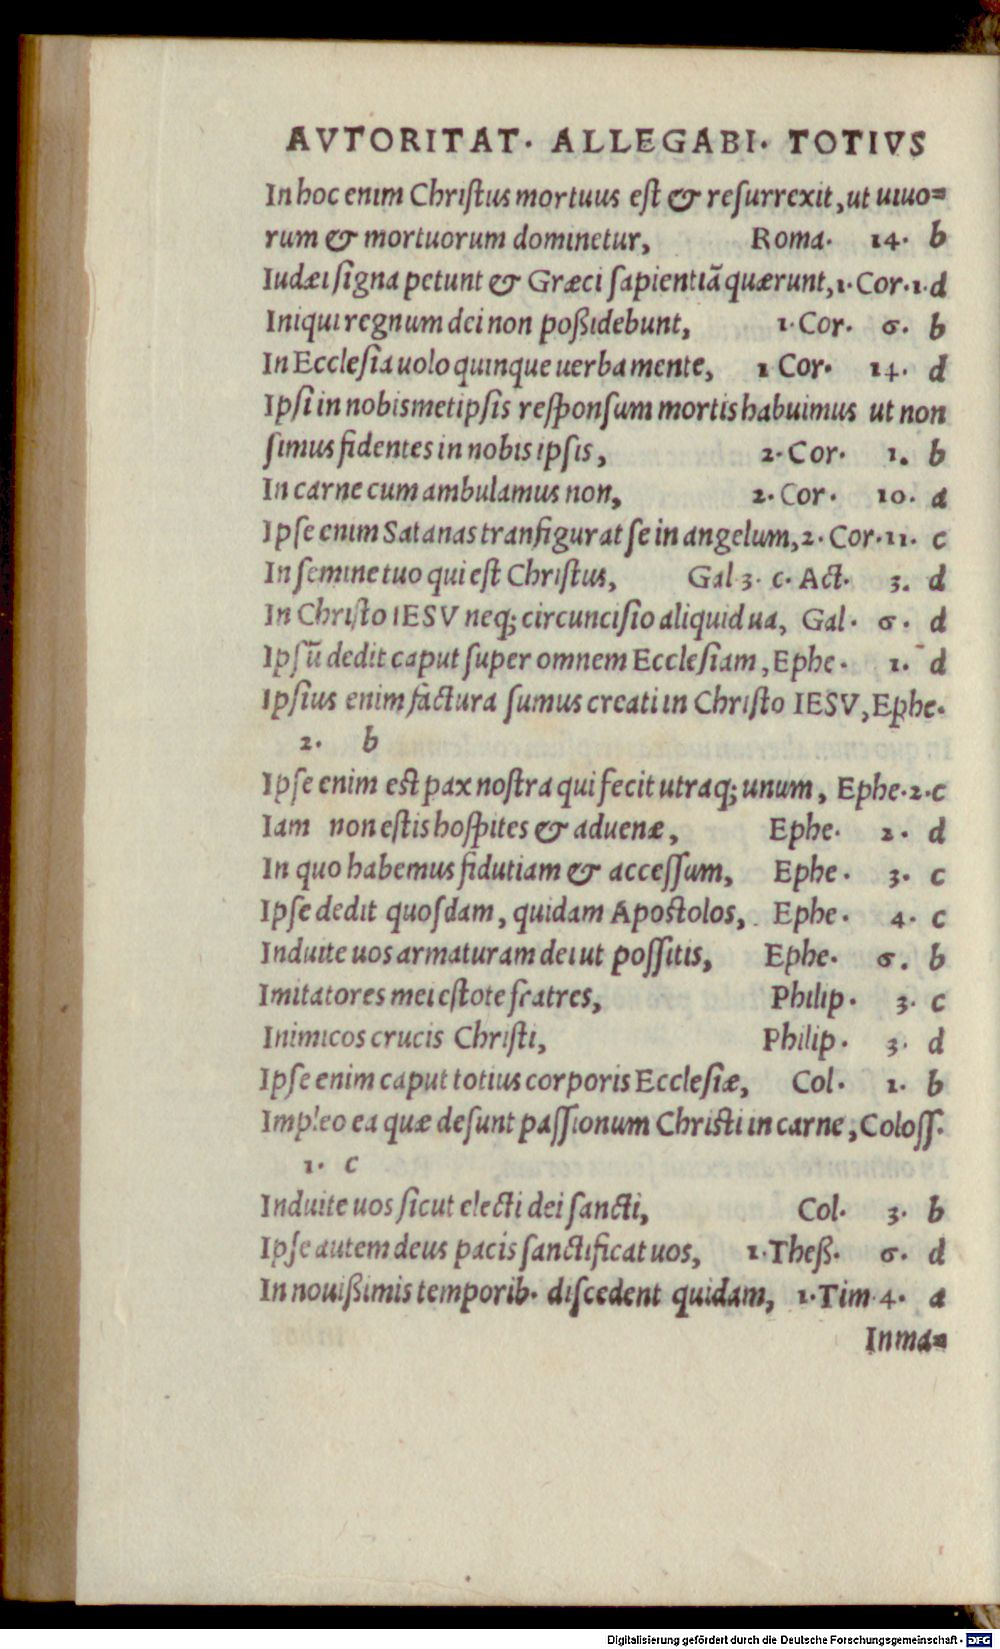 AVTORITAT. ALLEGABI. TOTIVS
In hoc enim Chriſtus mortuus eſt & reſurrexit, ut uiuo=
rum & mortuorum dominetur, Roma. 14. b
Iudæi ſigna petunt & Græci ſapientiã quærunt, 1. Cor. 1. d
Iniqui regnum dei non poßidebunt, 1. Cor. 6. b
In Eccleſia uolo quinque uerba mente, 1 Cor. 14. d
Ipſi in nobismetipſis reſponſum mortis habuimus ut non
ſimus fidentes in nobis ipſis, 2. Cor. 1. b
In carne cum ambulamus non, 2. Cor. 10. a
Ipſe enim Satanas tranſigurat ſe in angelum, 2. Cor. 11. c
In ſemine tuo qui eſt Chriſtus, Gal 3. c. Act. 3. d
In Chriſto IESV neq; circunciſio aliquid ua, Gal. 6. d
Ipſũ dedit caput ſuper omnem Eccleſiam, Ephe. 1. d
Ipſius enim factura ſumus creati in Chriſto IESV, Ephe.
2. b
Ipſe enim est pax noſtra qui fecit utraq; unum, Ephe. 2. c
Iam non eſtis hoſpites & aduenæ, Ephe. 2. d
In quo habemus fidutiam & acceſſum, Ephe. 3. c
Ipſe dedit quoſdam, quidam Apostolos, Ephe. 4. c
Induite uos armaturam dei ut poſſitis, Ephe. 6. b
Imitatores mei eſtote fratres, Philip. 3. c
Inimicos crucis Chriſti, Philip. 3. d
Ipſe enim caput totius corporis Eccleſiæ, Col. 1. b
Impleo ea quæ deſunt paſſionum Christi in carne, Coloſſ.
1. c
Induite uos ſicut electi dei ſancti, Col. 3. b
Ipſe autem deus pacis ſanctificat uos, 1. Theß. 6. d
In nouißimis temporib. diſcedent quidam, 1. Tim 4. a
In ma=
Digitalisierung gefördert durch die Deutsche Forschungsgemeinschaft - DFG